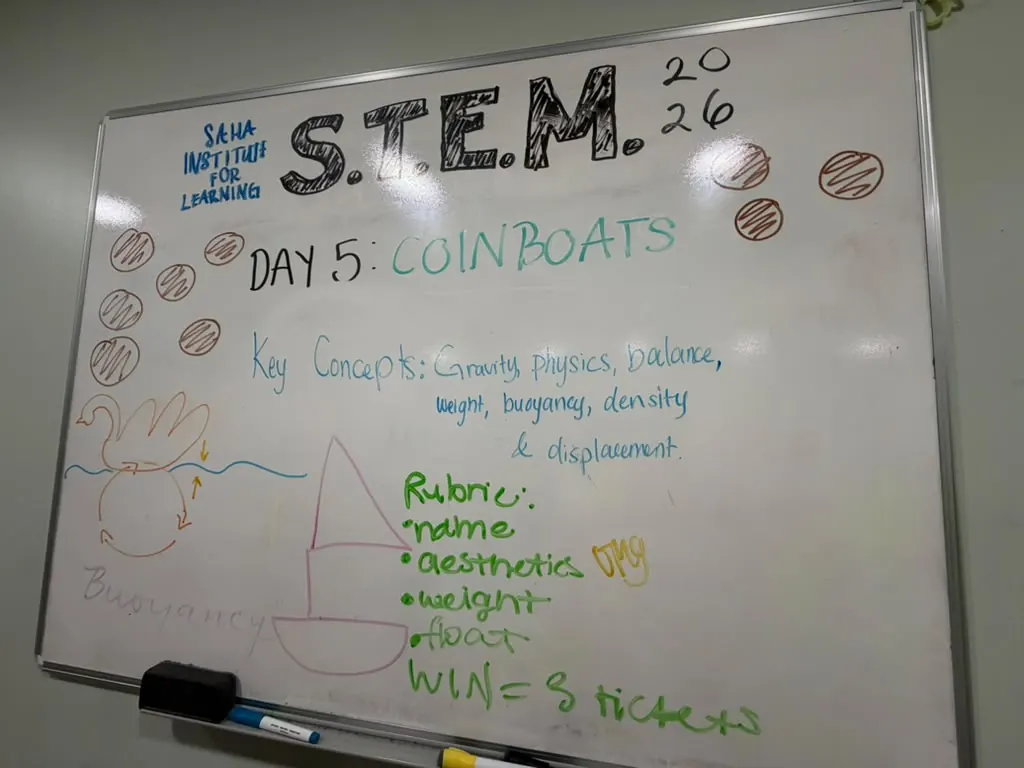 SAHA
INSTITUTE
FOR
LEARNING
S.T.E.M.
20
26
DAY 5: COINBOATS
Key Concepts: Gravity, physics, balance,
weight, buoyancy, density
& displacement.
Rubric:
•name
•aesthetics omg
•weight
•float
WIN = 3 tickets
Buoyancy